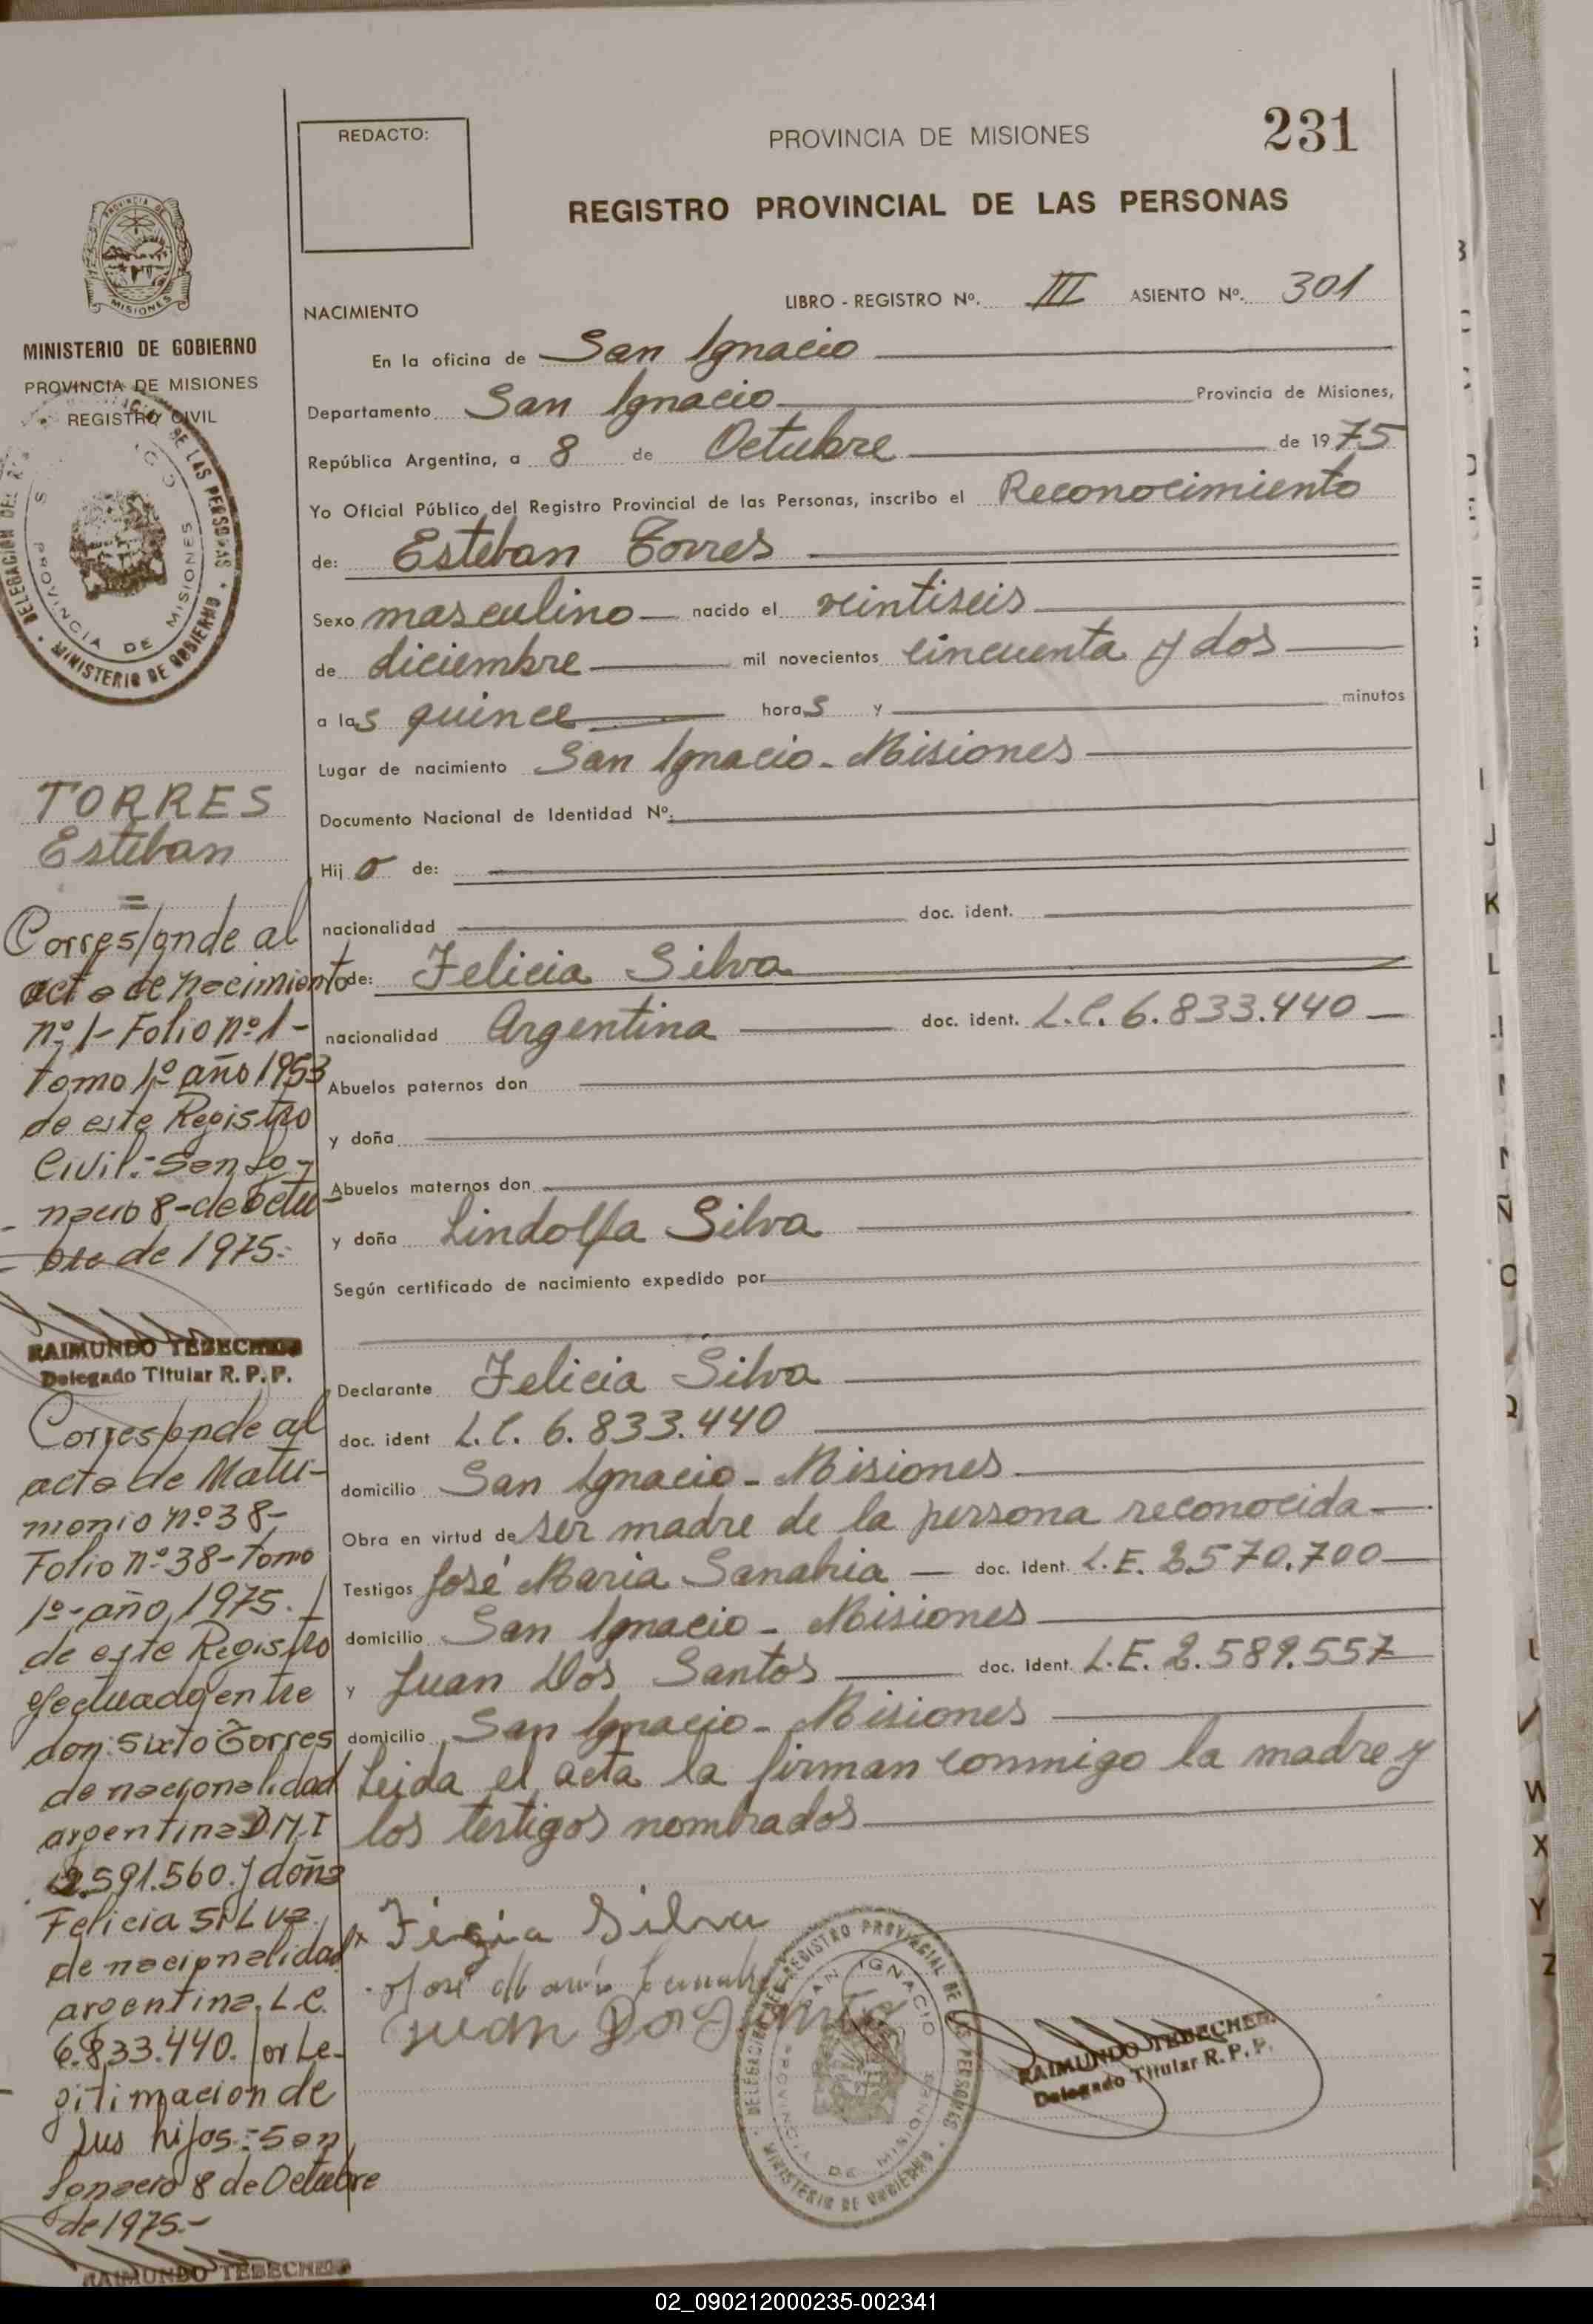 REDACTO:
PROVINCIA DE MISIONES
231
REGISTRO PROVINCIAL DE LAS PERSONAS
NACIMIENTO
LIBRO - REGISTRO Nº. III ASIENTO Nº. 301
En la oficina de San Ignacio
Departamento San Ignacio Provincia de Misiones,
República Argentina, a 8 de Octubre de 1975
Yo Oficial Público del Registro Provincial de las Personas, inscribo el Reconocimiento
de: Esteban Torres
Sexo masculino nacido el veintiseis
de diciembre mil novecientos cincuenta y dos
a las quince horas y minutos
Lugar de nacimiento San Ignacio - Misiones
Documento Nacional de Identidad Nº.
Hijo de:
nacionalidad doc. ident.
de: Felicia Silva
nacionalidad Argentina doc. ident. L.C. 6.833.440
Abuelos paternos don
y doña
Abuelos maternos don
y doña Lindolfa Silva
Según certificado de nacimiento expedido por
Declarante Felicia Silva
doc. ident L.C. 6.833.440
domicilio San Ignacio - Misiones
Obra en virtud de ser madre de la persona reconocida
Testigos José Maria Sanabria doc. ident. L.E. 2.570.700
domicilio San Ignacio - Misiones
y Juan Dos Santos doc. ident. L.E. 2.589.557
domicilio San Ignacio - Misiones
Leida el acta la firman conmigo la madre y
los testigos nombrados
Silva
José
Juan Dos Santos
DELEGACION DEL REGISTRO PROVINCIAL DE LAS PERSONAS
SAN IGNACIO
PROVINCIA DE MISIONES
MINISTERIO DE GOBIERNO
RAIMUNDO TEBECHER
Delegado Titular R. P. P.
PROVINCIA DE
MISIONES
MINISTERIO DE GOBIERNO
PROVINCIA DE MISIONES
REGISTRO CIVIL
DE LAS PERSONAS
PROVINCIA DE MISIONES
MINISTERIO DE GOBIERNO
TORRES
Esteban
=
Corresponde al
acta de nacimiento
nº 1 - Folio nº 1 -
tomo 1º año 1953
de este Registro
Civil.- San Ig-
nacio 8 - de Octu-
bre de 1975.-
RAIMUNDO TEBECHER
Delegado Titular R. P. P.
Corresponde al
acta de Matri-
monio nº 38 -
Folio nº 38 - Tomo
1º - año 1975.
de este Registro
efectuado entre
don: Sixto Torres
de nacionalidad
argentina D N I
2.591.560. y doña
Felicia Silva
de nacionalidad
argentina. L.C.
6.833.440. por Le-
gitimacion de
sus hijos.- San
Ignacio 8 de Octubre
de 1975.-
RAIMUNDO TEBECHER
J
K
L
Ñ
O
Q
W
X
Y
Z
02_090212000235-002341